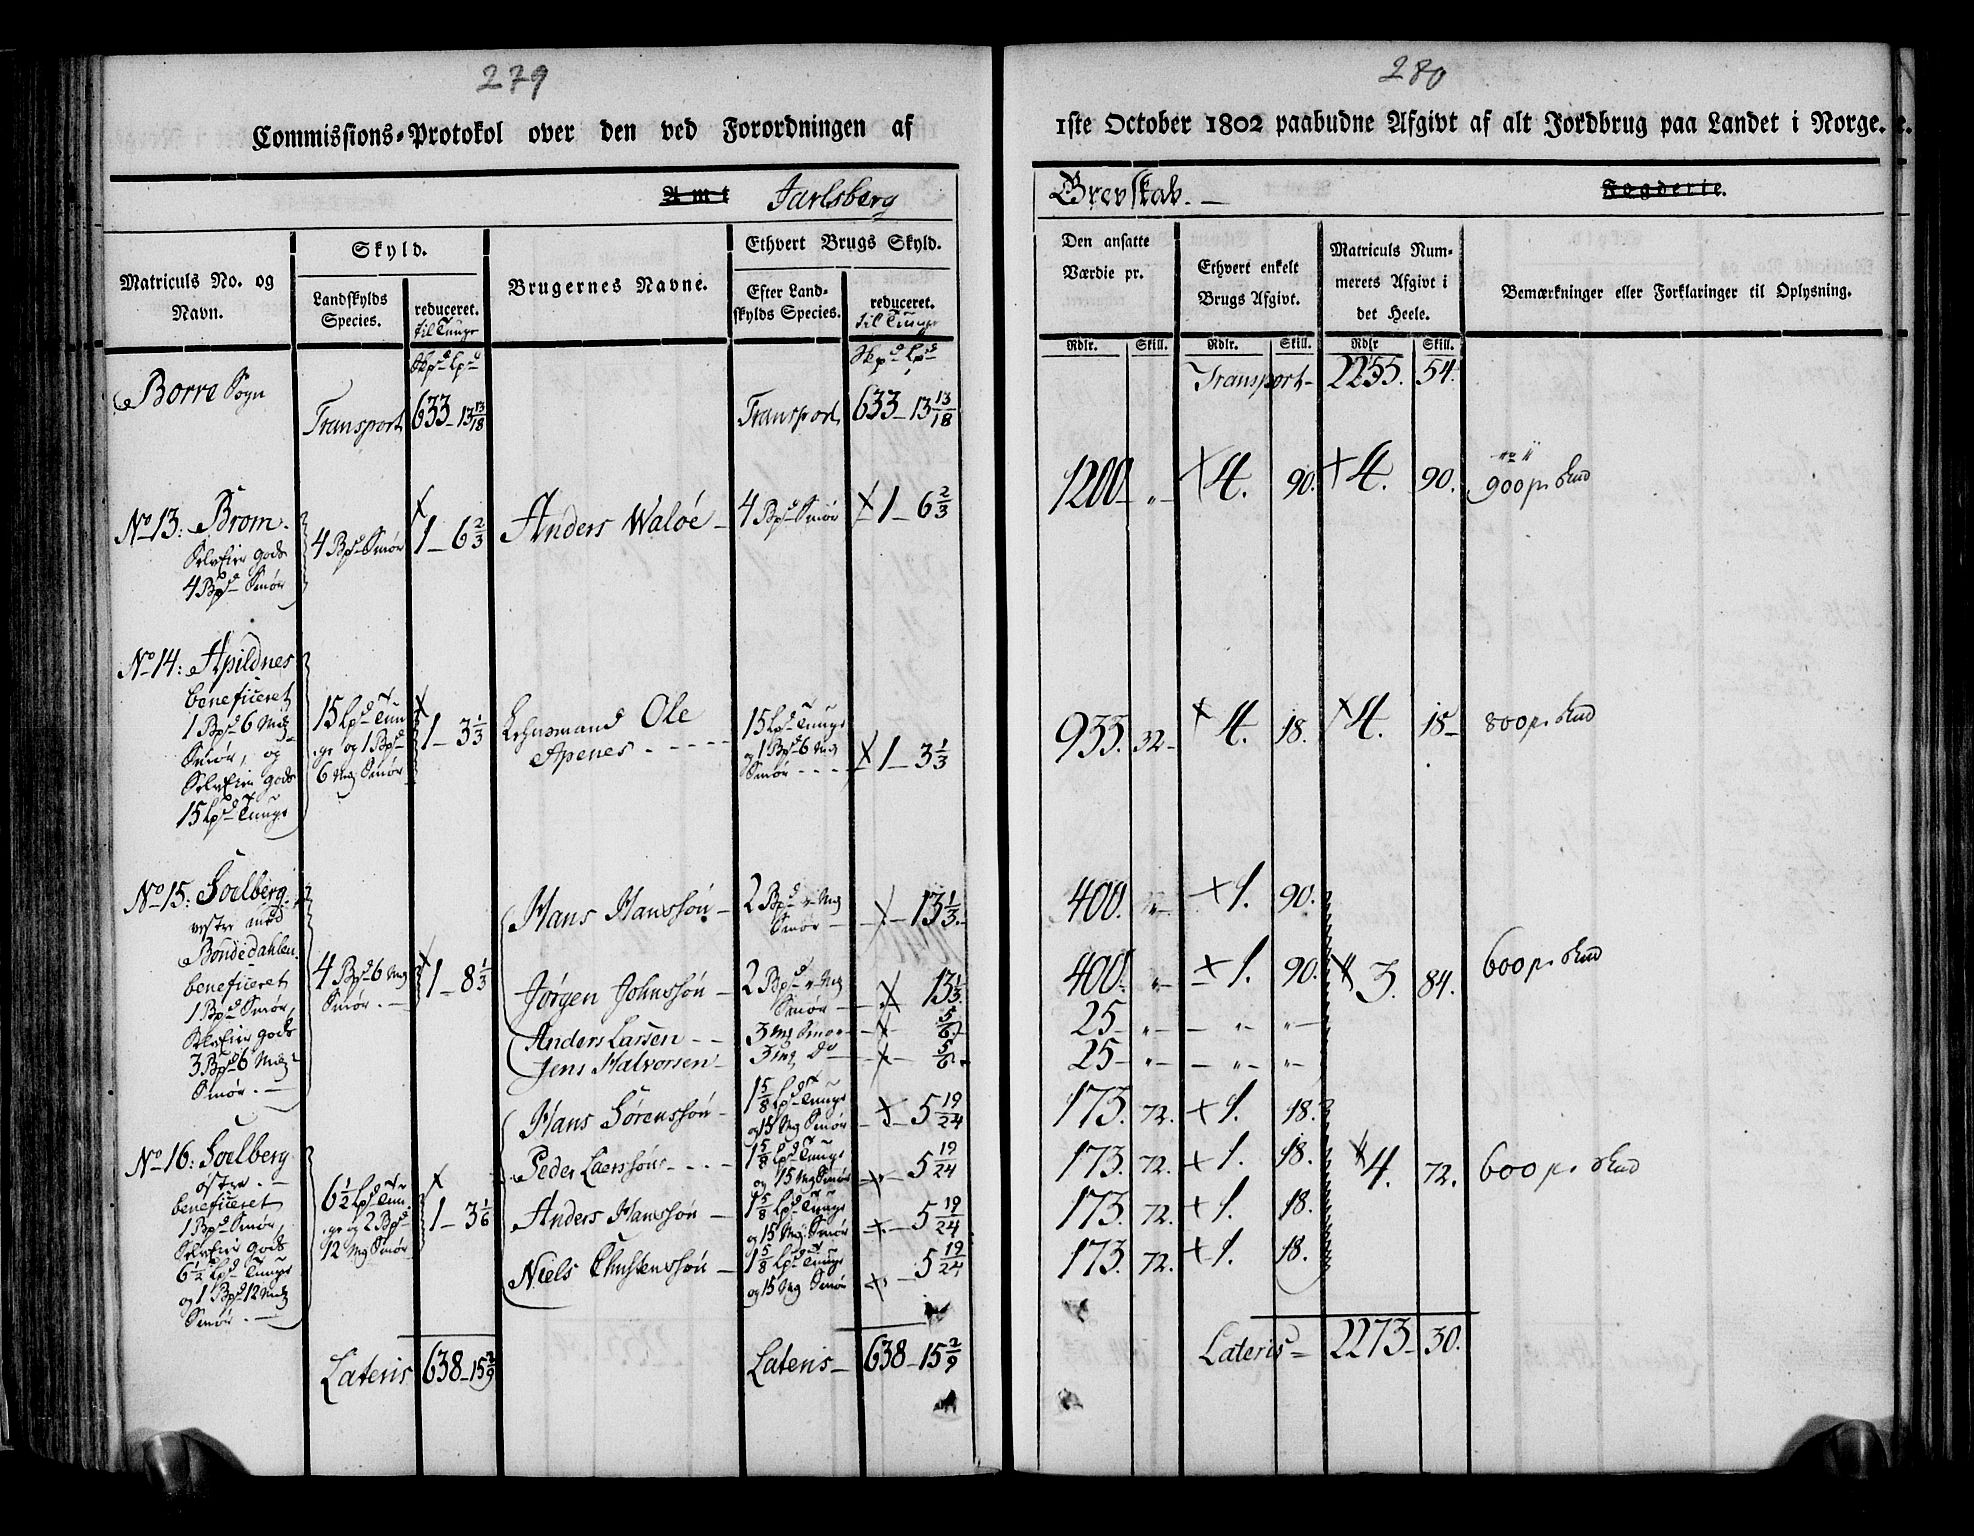 279
Commissions-Protokol over den ved Forordningen af
Amt Jarlsberg
Matriculs No. og Navn.
Skyld.
Landskylds Species.
reduceret. til Tunge
Brugernes Navne.
Ethvert Brugs Skyld.
Efter Landskylds Species.
reduceret. til Tunge
Skpd Lpd
Skpd Lpd
Borre Sogn
Transport 633 - 13 13/18
Transport 633 - 13 13/18
No 13: Brom.
SelvEier Gods
4 Bpd Smør
4 Bpd Smør
1 - 6 2/3
Anders Waløe -
4 Bpd Smør
1 - 6 2/3
No 14: Apildnes
beneficeret
1 Bpd 6 Mrk
Smør, og
SelvEier Gods
15 Lpd Tunge
15 Lpd Tun
ge og 1 Bpd
6 Mrk Smør
1 - 3 1/3
Lehnsmand Ole
Apenes - - - - -
15 Lpd Tunge
og 1 Bpd 6 Mrk
Smør - - - -
1 - 3 1/3
No 15: Soelberg
vestre med
Bondedahlen
beneficeret
1 Bpd Smør,
SelvEier Gods
3 Bpd 6 Mrk
Smør. -
4 Bpd 6 Mrk
Smør. -
1 - 8 1/3
Hans Hanssøn -
2 Bpd " Mrk
Smør -
13 1/3
Jørgen Johnssøn -
2 Bpd " Mrk
Smør -
13 1/3
Anders Larsen - -
3 Mrk Smør -
5/6
Jens Halvorsen -
3 Mrk Do
5/6
No 16: Soelberg
østre. -
beneficeret
1 Bpd Smør,
SelvEier Gods
6 1/2 Lpd Tunge
og 1 Bpd 12 Mrk
Smør. -
6 1/2 Lpd Tun
ge og 2 Bpd
12 Mrk Smør
1 - 3 1/6
Hans Sørenssøn -
1 5/8 Lpd Tunge
og 15 Mrk Smør
5 19/24
Peder Laerssøn - - - -
1 5/8 Lpd Tunge
og 15 Mrk Smør
5 19/24
Anders Hanssøn -
1 5/8 Lpd Tunge
og 15 Mrk Smør
5 19/24
Niels Christenssøn -
1 5/8 Lpd Tunge
og 15 Mrk Smør
5 19/24
Lateris 638 - 15 2/9
Lateris - 638 - 15 2/9
280
1ste October 1802 paabudne Afgivt af alt Jordbrug paa Landet i Norge.
Grevskab. - Fogderie.
Den ansatte Værdie pr.
Ethvert enkelt Brugs Afgivt.
Matriculs Nummerets Afgivt i det Heele.
Bemærkninger eller Forklaringer til Oplysning.
Rdlr. Skill. Rdlr. Skill. Rdlr Skill.
Transport - 2255. 54.
1200 - " - 4. 90. 4. 90. 900 pr.
933. 32 - 4. 18. 4. 18 - 800 pr.
400. " - 1. 90.
400. " - 1. 90. 3. 84. 600 pr.
25 - " - - " - " -
25 - " - - " - " -
173. 72. 1. 18.
173. 72. 1. 18. 4. 72. 600 pr.
173. 72. 1. 18.
173. 72. 1. 18.
Lateris - 2273 - 30.